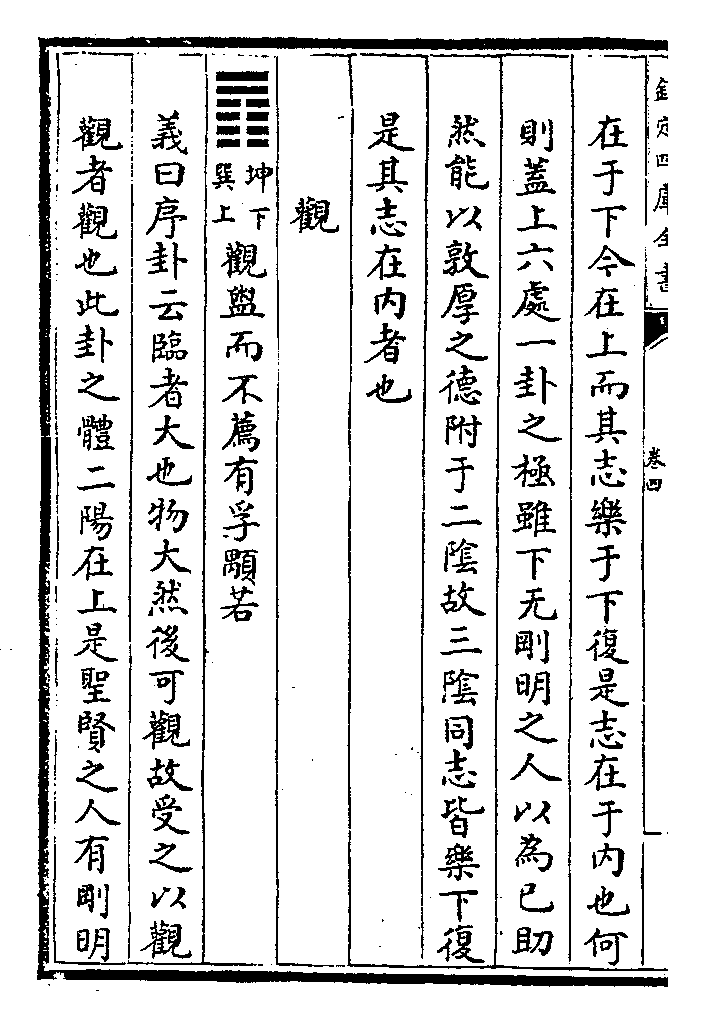 欽定四庫全書
卷四
在于下今在上而其志樂于下復是志在于内也何
則蓋上六處一卦之極雖下无剛明之人以為已助
然能以敦厚之德附于二陰故三陰同志皆樂下復
是其志在内者也
觀
䷓坤下巽上觀盥而不薦有孚顒若
義曰序卦云臨者大也物大然後可觀故受之以觀
觀者觀也此卦之體二陽在上是聖賢之人有剛明